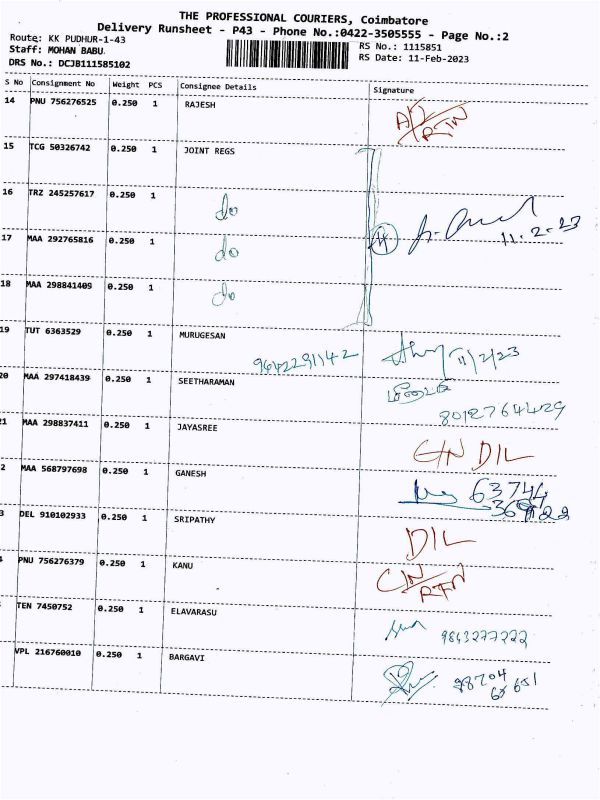 THE PROFESSIONAL COURIERS, Coimbatore
Delivery Runsheet - P43 - Phone No.:0422-3505555 - Page No.:2
Route: KK PUDHUR-1-43
RS No.: 1115851
Staff: MOHAN BABU
RS Date: 11-Feb-2023
DRS No.: DCJB111585102
S No Consignment No Weight PCS Consignee Details Signature
14 PNU 756276525 0.250 1 RAJESH
15 TCG 50326742 0.250 1 JOINT REGS
16 TRZ 245257617 0.250 1 do
17 MAA 292765816 0.250 1 do 11.2.23
18 MAA 298841409 0.250 1 do
19 TUT 6363529 0.250 1 MURUGESAN 9642291142 11/2/23
20 MAA 297418439 0.250 1 SEETHARAMAN 8012764429
21 MAA 298837411 0.250 1 JAYASREE DIL
2 MAA 568797698 0.250 1 GANESH 63744
3 DEL 910102933 0.250 1 SRIPATHY DIL
4 PNU 756276379 0.250 1 KANU
TEN 7450752 0.250 1 ELAVARASU 9843277222
VPL 216760010 0.250 1 BARGAVI